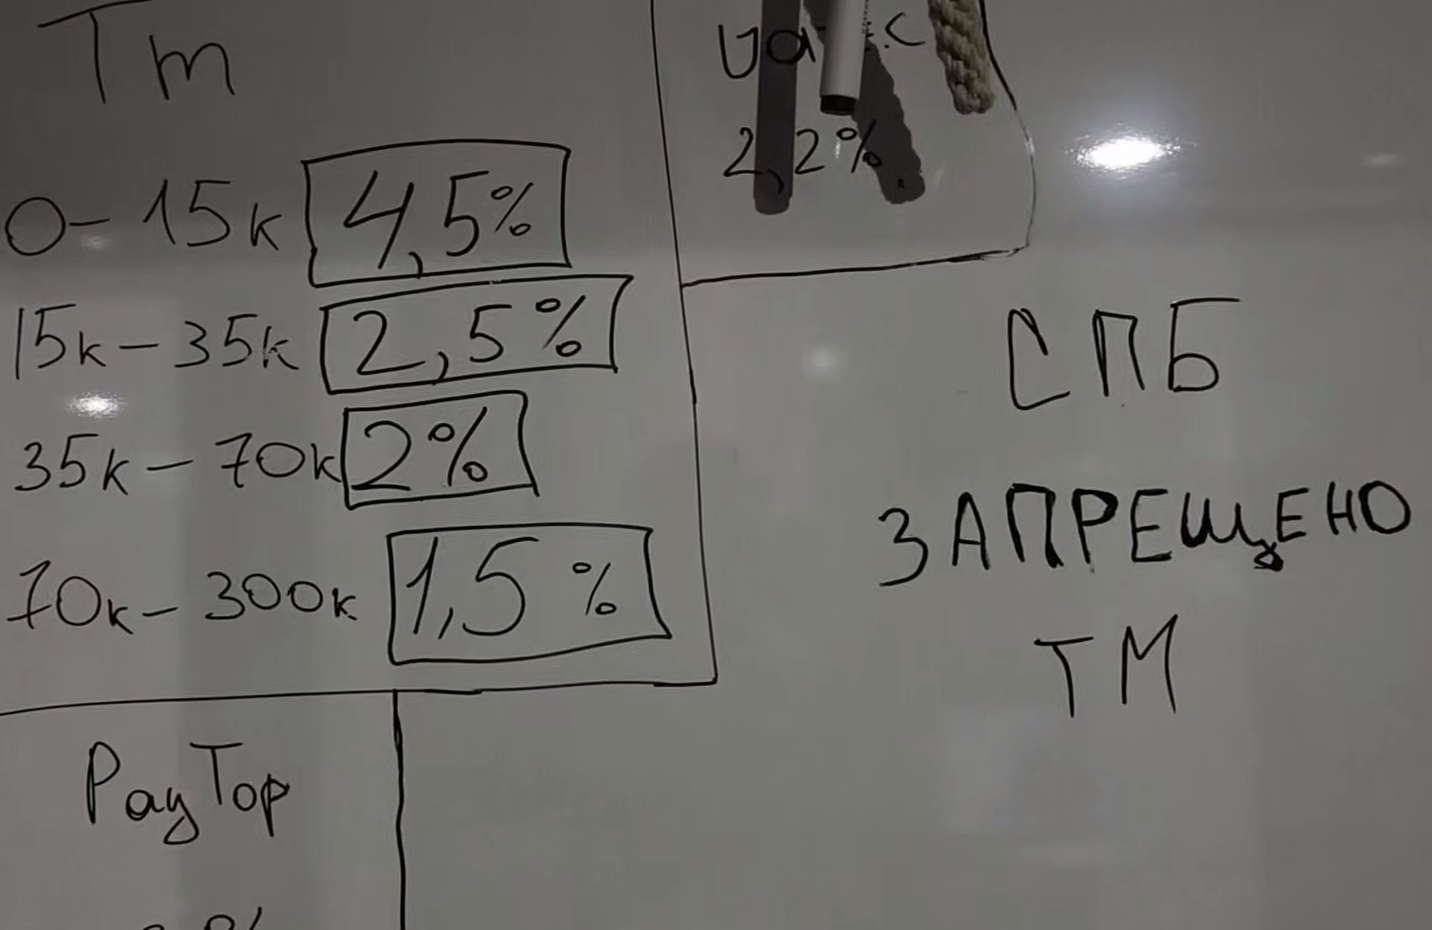 Tm
0-15к 4,5%
15к-35к 2,5%
35к-70к 2%
70к-300к 1,5%
2,2%
СПБ
ЗАПРЕЩЕНО
ТМ
PayTop